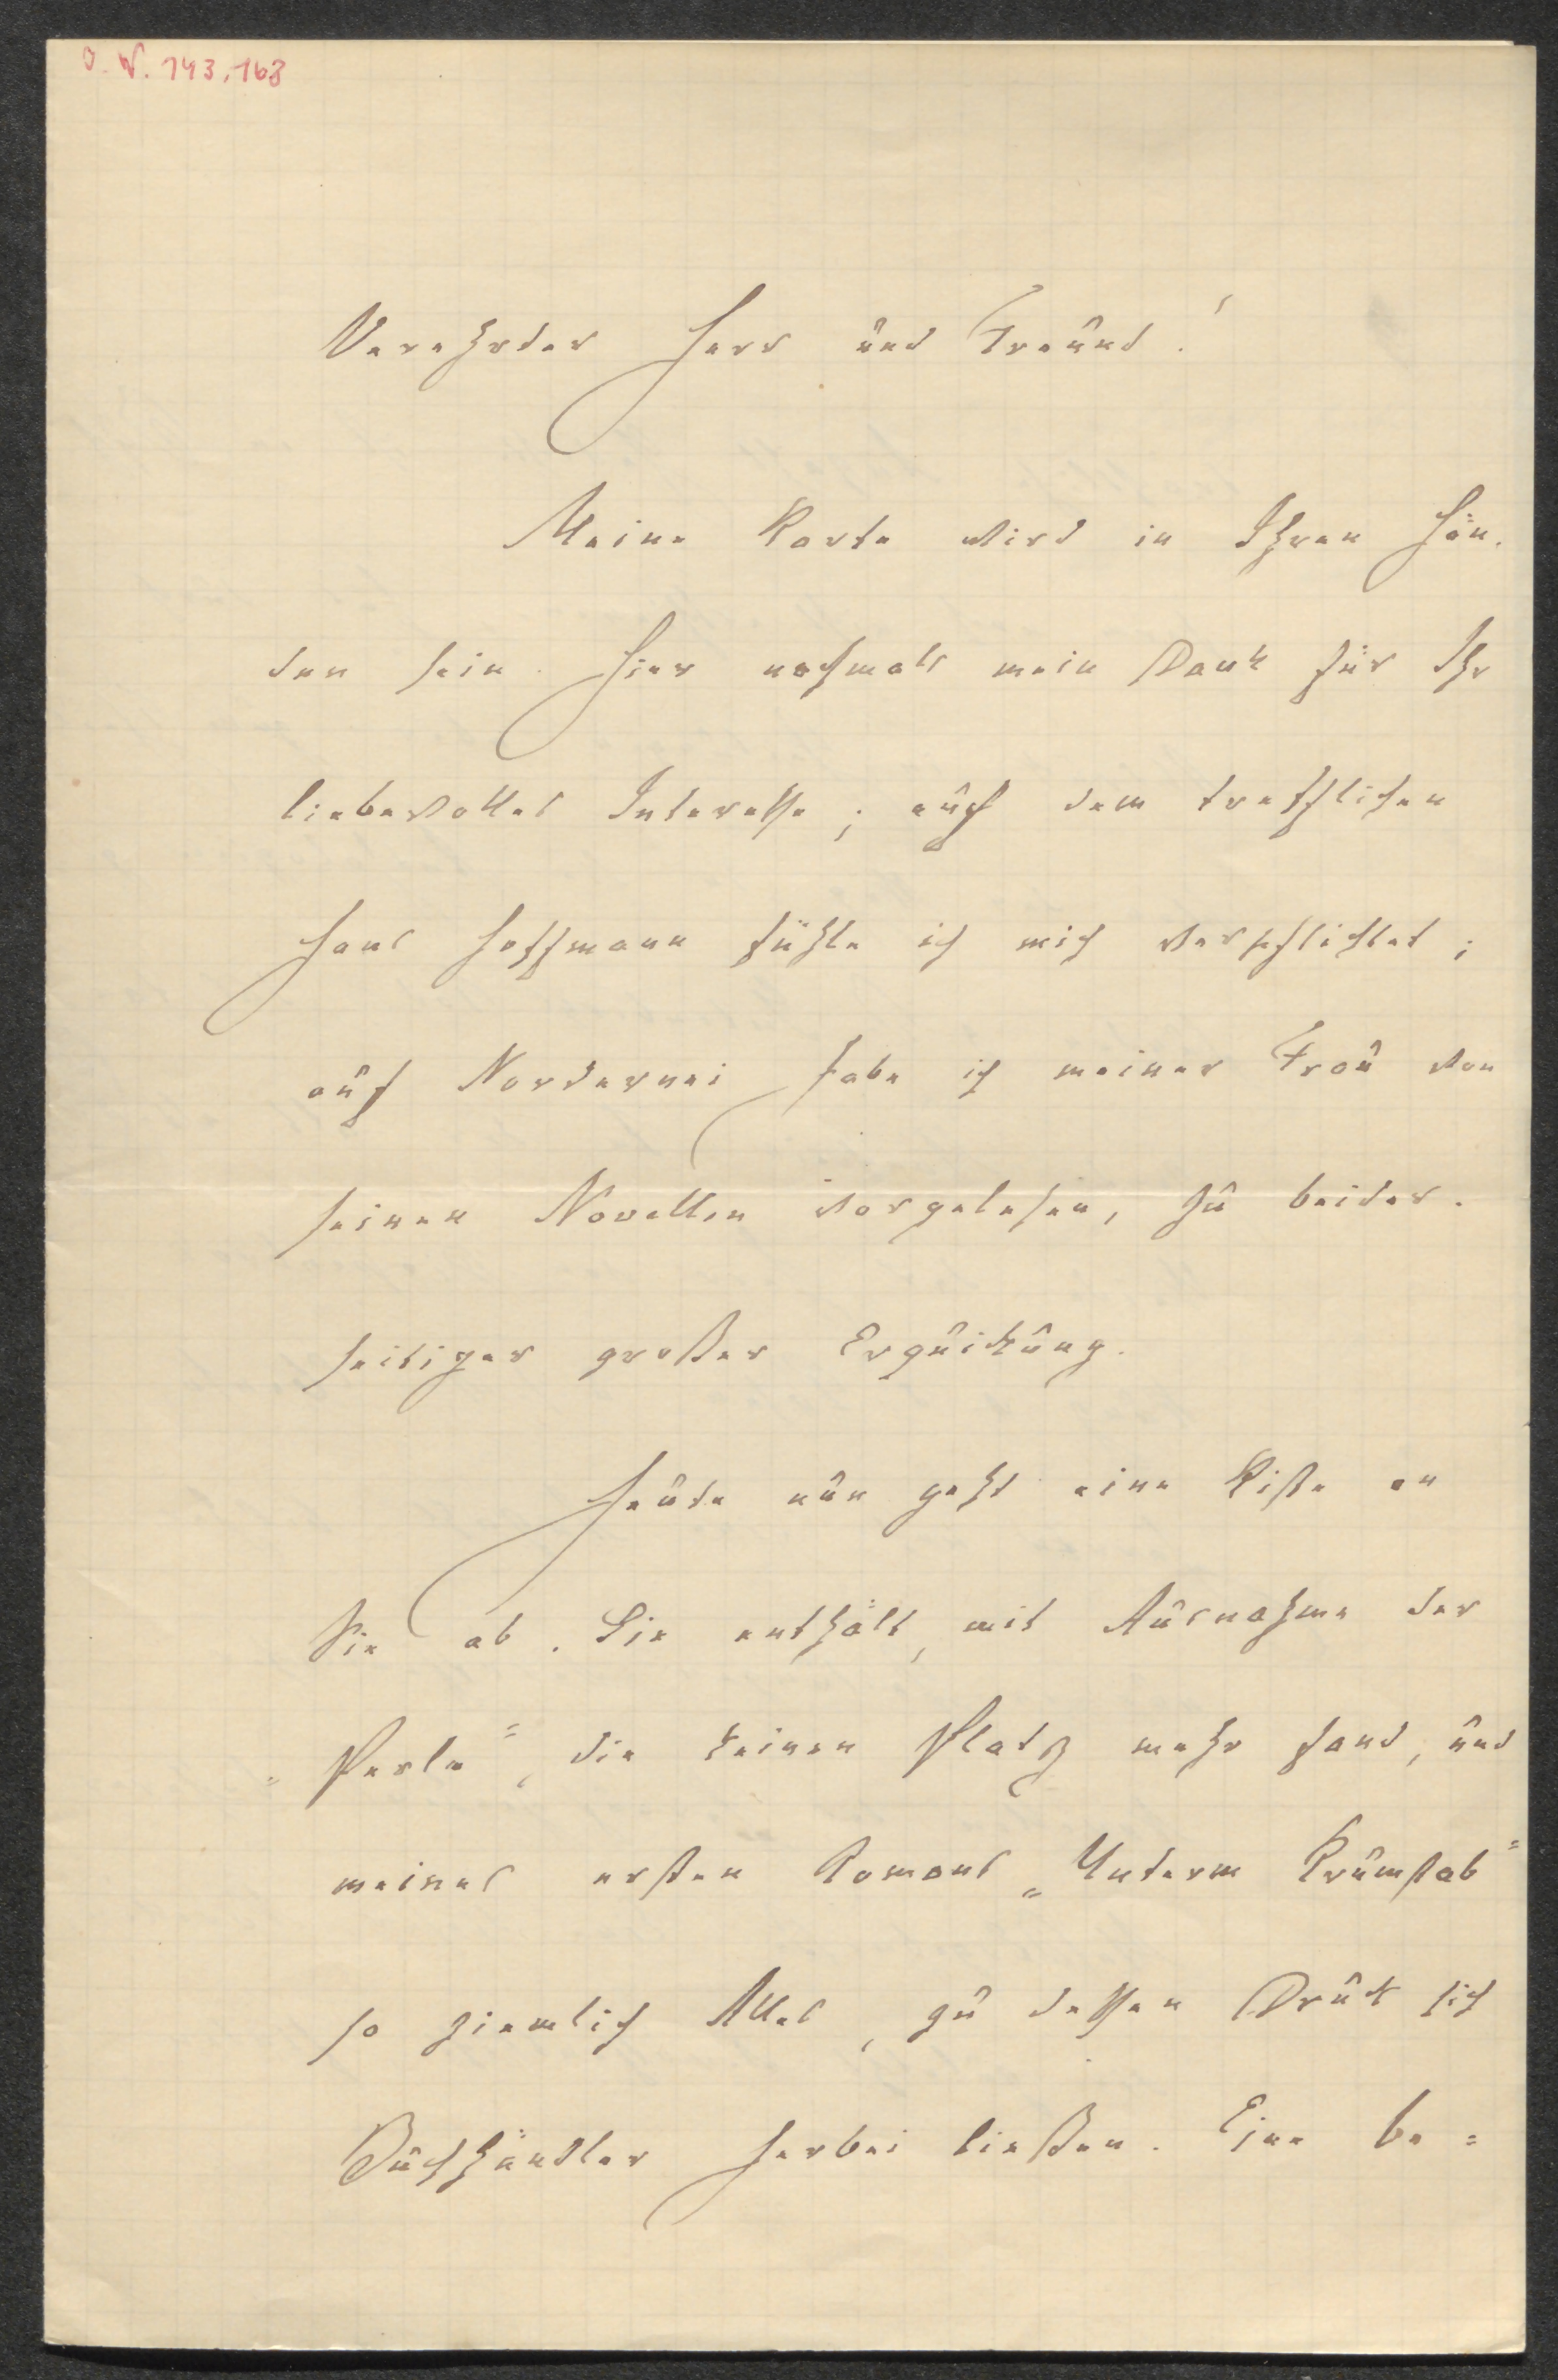 O. W. 143,168
Verehrter Herr und Freund!
Meine Karte wird in Ihren Hän-
den sein. Hier nochmals mein Dank für Ihr
liebevolles Interesse; auch dem trefflichen
Hans Hoffmann fühle ich mich verpflichtet;
auf Nordernei habe ich meiner Frau von
seinen Novellen vorgelesen, zu beider-
seitiger großer Erquickung.
Heute nun geht eine Kiste an
Sie ab. Sie enthält, mit Ausnahme der
„Perle“, die keinen Platz mehr fand, und
meines ersten Romans „Unterm Krumstab“
so ziemlich Alles, zu dessen Druck sich
Buchhändler herbei ließen. Eine be=